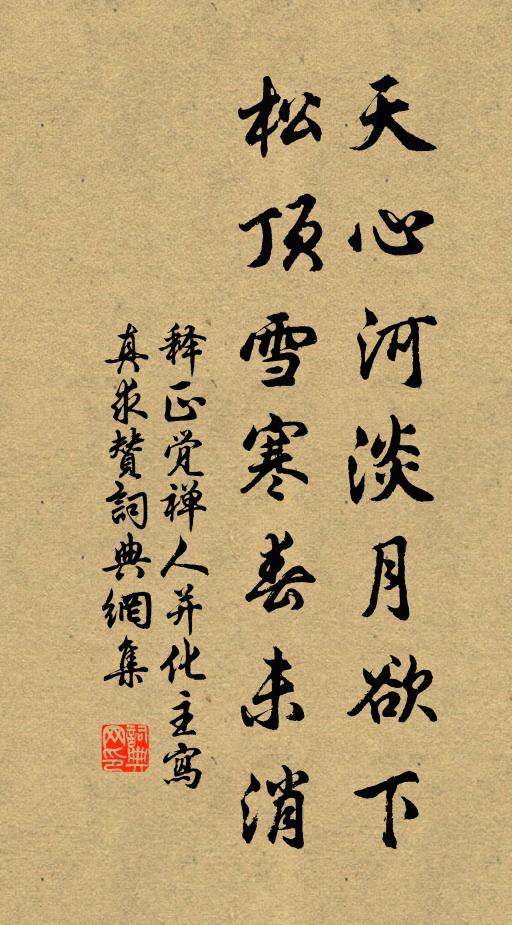 天心河淡月欲下
松顶雪寒春未消
释正觉禅人并化主寫
真求賛詞典網集
詞典網印